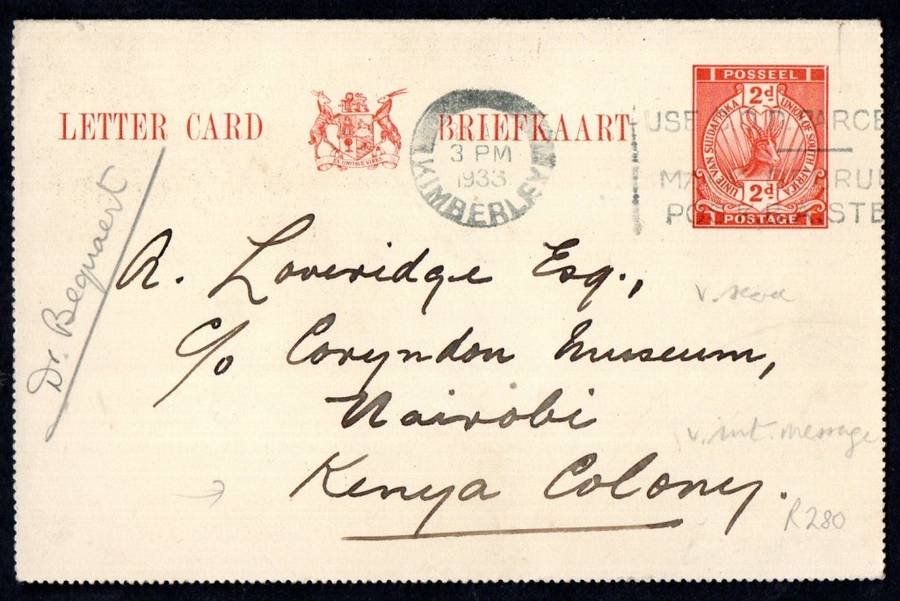 LETTER CARD BRIEFKAART
EX UNITATE VIRES
3 PM
1933
KIMBERLEY
USE
POSSEEL
2d 
UNIE VAN SUIDAFRIKA
UNION OF SOUTH AFRICA
2d
POSTAGE
Dr. Bequaert
A. Loveridge Esq.,
c/o Coryndon Museum,
Nairobi
Kenya Colony.
v. int. message
R280